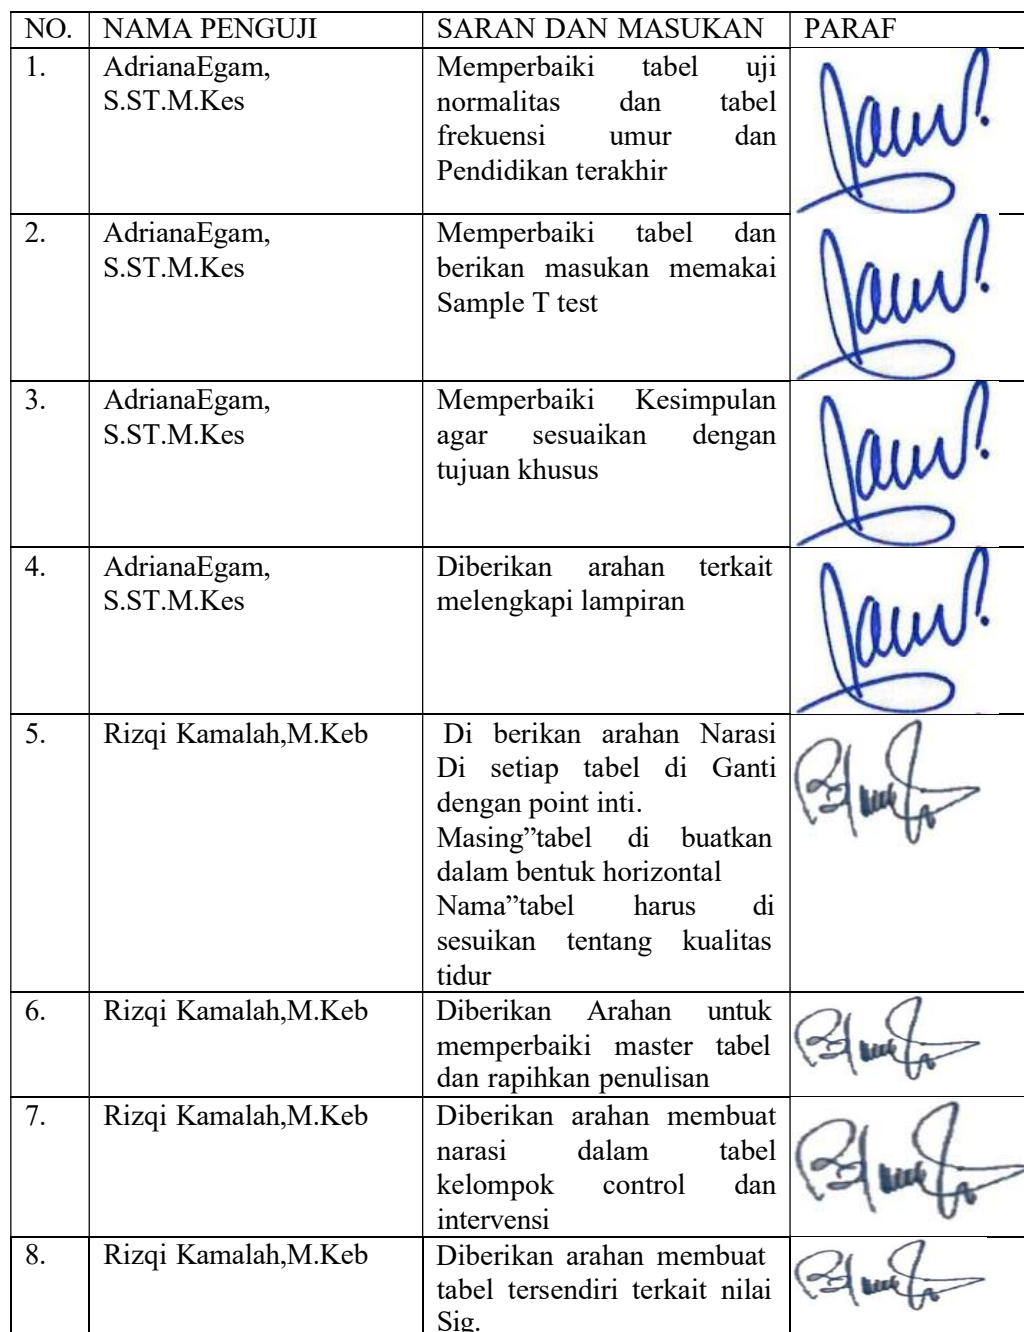 NO. NAMA PENGUJI SARAN DAN MASUKAN PARAF
1. AdrianaEgam, Memperbaiki tabel uji
S.ST.M.Kes normalitas dan tabel
frekuensi umur dan
Pendidikan terakhir
2. AdrianaEgam, Memperbaiki tabel dan
S.ST.M.Kes berikan masukan memakai
Sample T test
3. AdrianaEgam, Memperbaiki Kesimpulan
S.ST.M.Kes agar sesuaikan dengan
tujuan khusus
4. AdrianaEgam, Diberikan arahan terkait
S.ST.M.Kes melengkapi lampiran
5. Rizqi Kamalah,M.Keb Di berikan arahan Narasi
Di setiap tabel di Ganti
dengan point inti.
Masing”tabel di buatkan
dalam bentuk horizontal
Nama”tabel harus di
sesuikan tentang kualitas
tidur
6. Rizqi Kamalah,M.Keb Diberikan Arahan untuk
memperbaiki master tabel
dan rapihkan penulisan
7. Rizqi Kamalah,M.Keb Diberikan arahan membuat
narasi dalam tabel
kelompok control dan
intervensi
8. Rizqi Kamalah,M.Keb Diberikan arahan membuat
tabel tersendiri terkait nilai
Sig.